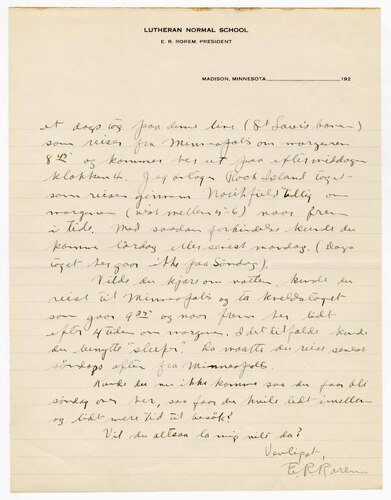 LUTHERAN NORMAL SCHOOL
E. R. ROREM, PRESIDENT
MADISON, MINNESOTA 192
et dags tog paa denne line (St Louis banen)
som reiser fra Minneapolis om morgenen
8 og kommer her ut paa eftermiddagen
klokken 4. Jeg Rock Island toget
som reiser gjennem Northfield tidlig om
morgenen (mellem 5-6) naar frem
i tide. Med saadan forbindelse kunde du
komme lördag eller senest mandag. (Dags
toget her gaar ikke paa Söndag).
Vilde du kjöre om natten, kunde du
reist til Minneapolis og ta kveldstoget
som gaar 9 og naar frem her lidt
efter 4 tiden om morgenen. I det tilfælde kunde
du benytte "sleeper". Da maatte du reise senest
söndags aften fra Minneapolis.
Kunde du nu ikke komme saa du faar bli
söndag over her, saa faar du hvile lidt imellem
og lidt mere tid til besök?
Vil du altsaa la mig vite da?
Venligst,
E. R. Rorem